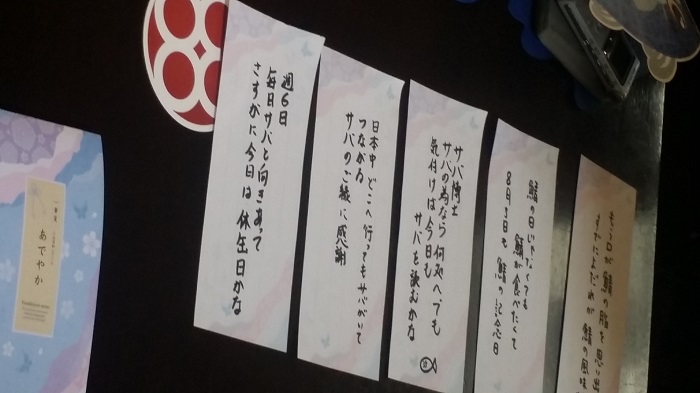 週6日
毎日サバと向き合って
さすがに今日は休缶日かな
日本中どこへ行ってもサバがいて
つながる
サバのご縁に感謝
サバ博士
サバの為なら何処へでも
気付けば今日も
サバを読むかな
鯖の日じゃなくても
鯖が食べたくて
8月3日も鯖の記念日
鯖の脂を思い出
鯖の風味
一筆箋
あでやか